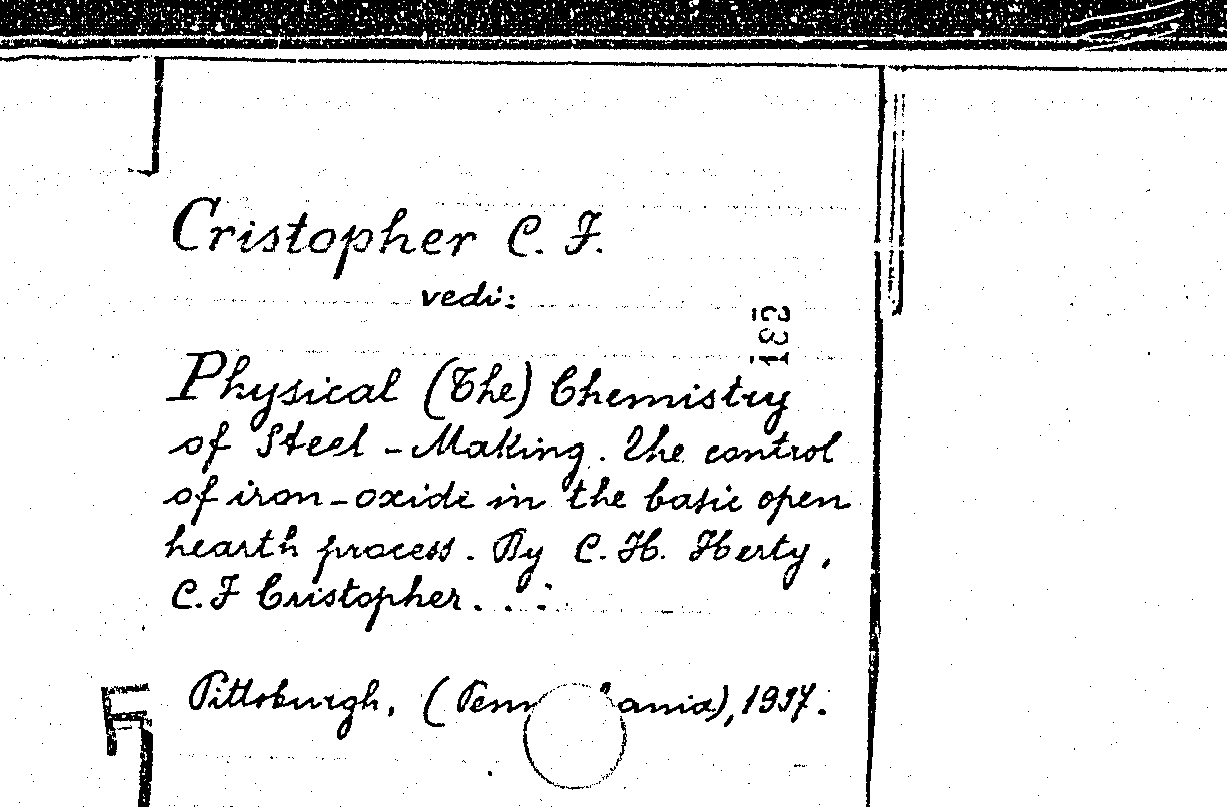 Cristopher C. F.
vedi:
183
Physical (The) Chemistry
of Steel - Making. The control
of iron - oxide in the basic open
hearth process. By C. H. Herty,
C. F Cristopher...
Pittsburgh, (